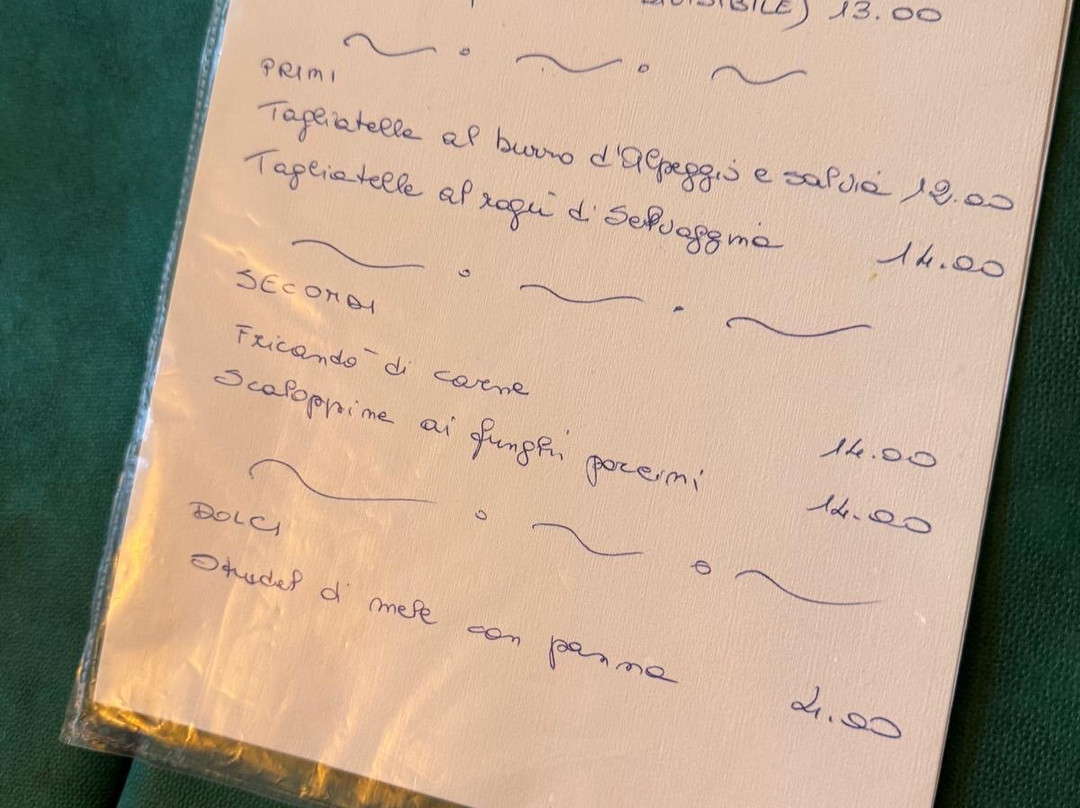 DIVISIBILE) 13.00
PRIMI
Tagliatelle al burro d'Alpeggio e salvia 12.00
Tagliatelle al ragù di Selvaggina 14.00
SECONDI
Fricandò di carne 14.00
Scaloppine ai funghi porcini 14.00
DOLCI
Strudel di mele con panna 4.00